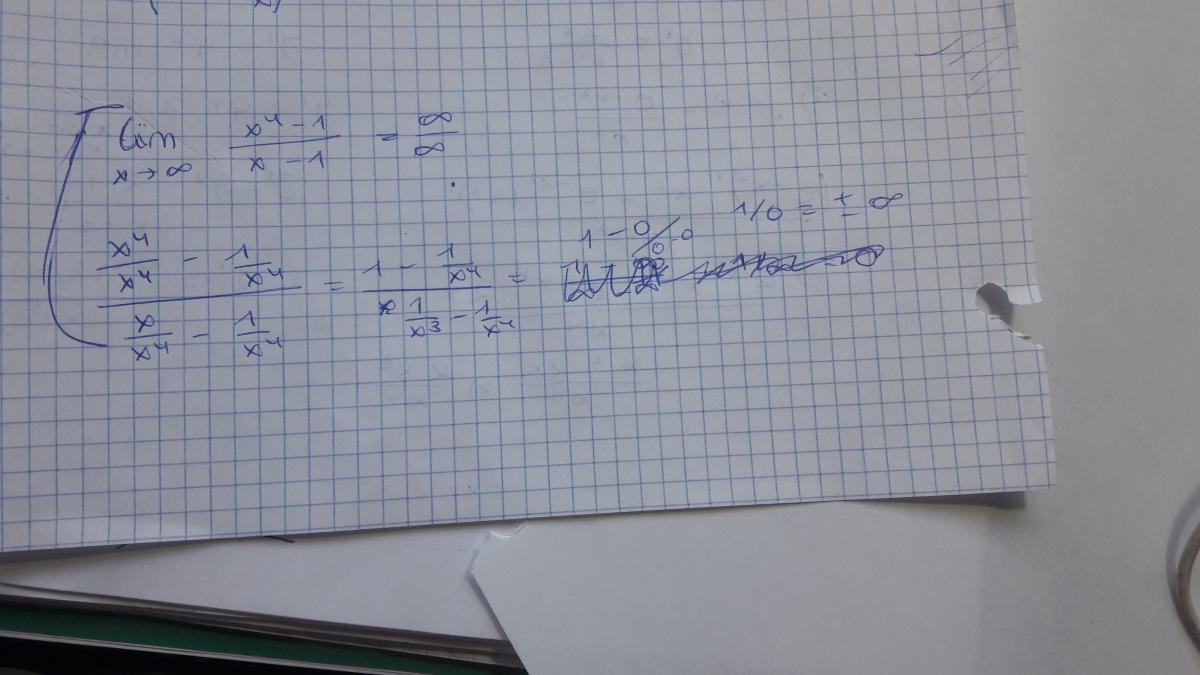 lim x→∞ (x⁴ - 1)/(x - 1) = ∞/∞
(x⁴/x⁴ - 1/x⁴)/(x/x⁴ - 1/x⁴) = (1 - 1/x⁴)/(1/x³ - 1/x⁴) = (1 - 0)/(0 - 0)
1/0 = ± ∞